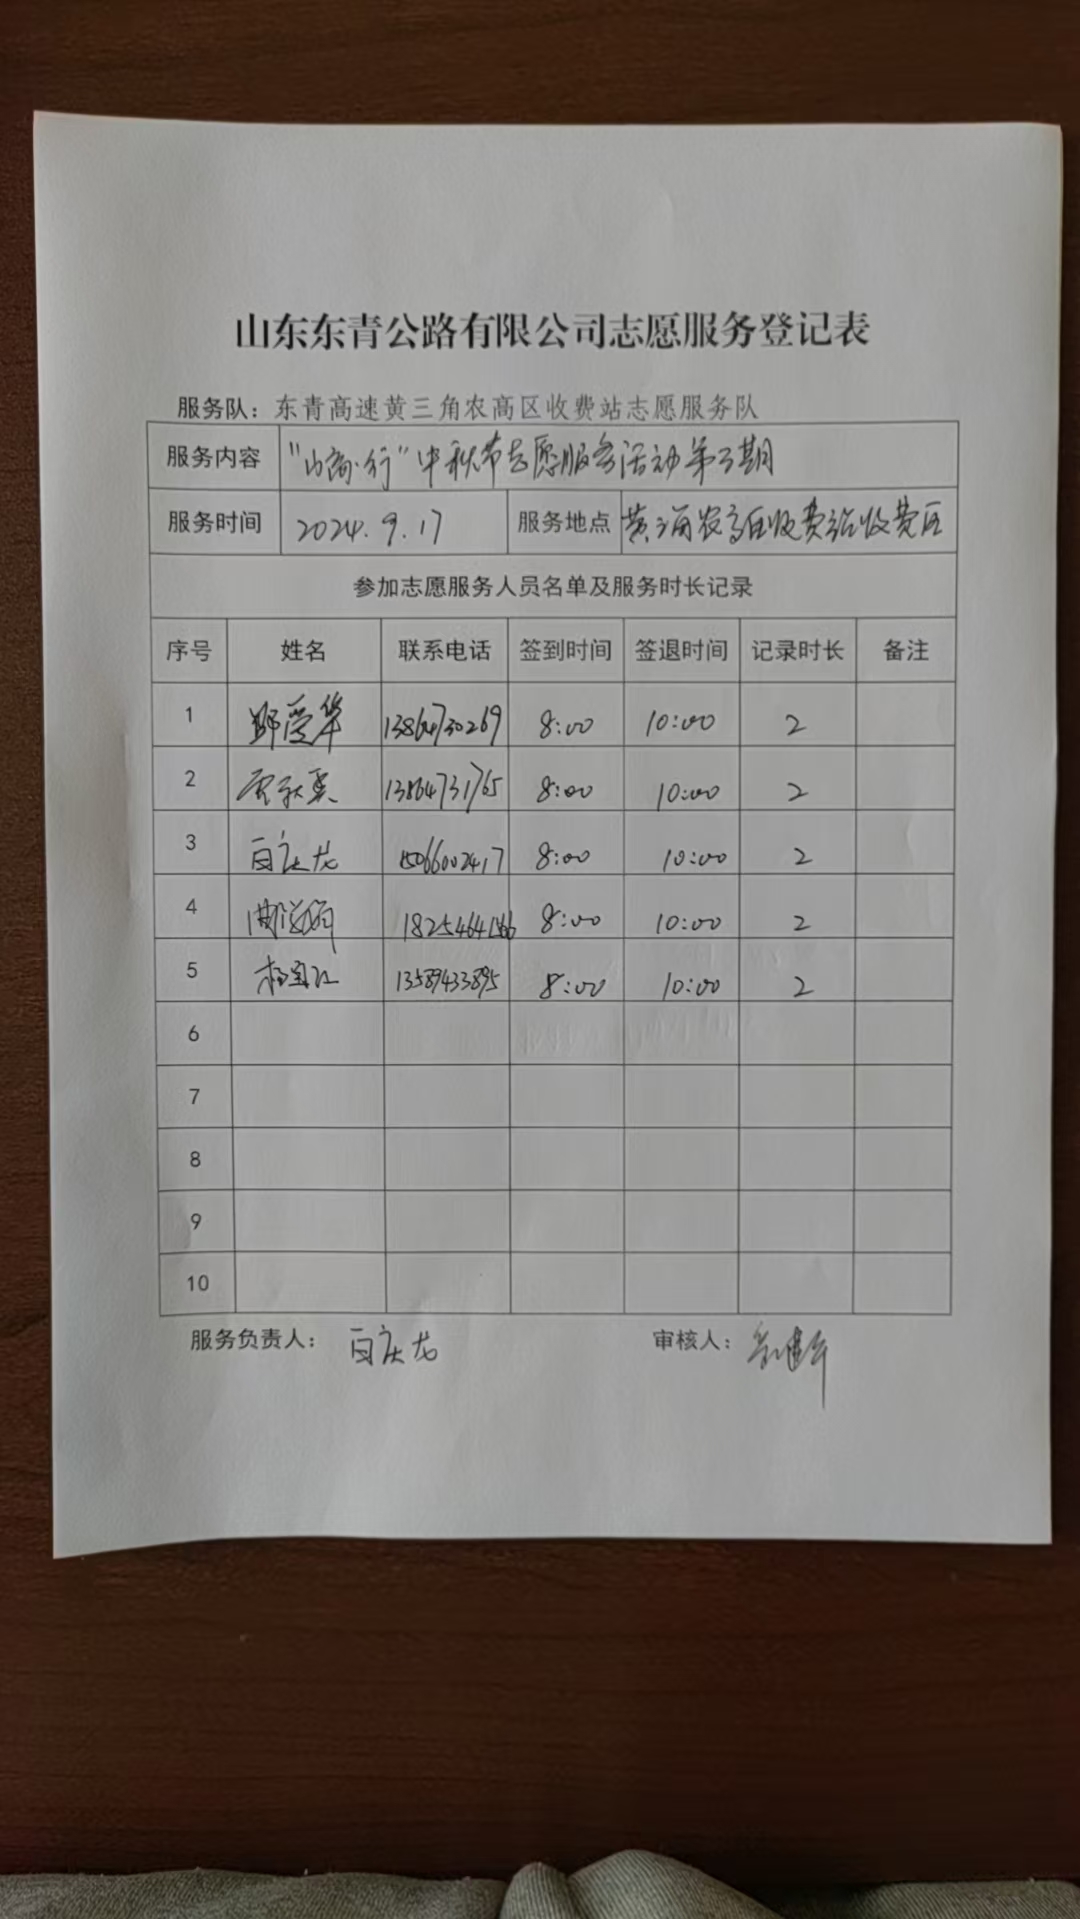 山东东青公路有限公司志愿服务登记表
服务队：东青高速黄三角农高区收费站志愿服务队
服务内容 "山高·行"中秋节志愿服务活动第三期
服务时间 2024.9.17 服务地点 黄三角农高区收费站收费区
参加志愿服务人员名单及服务时长记录
序号 姓名 联系电话 签到时间 签退时间 记录时长 备注
1 13864730269 8:00 10:00 2
2 13864731765 8:00 10:00 2
3 百庆龙 15066002417 8:00 10:00 2
4 8:00 10:00 2
5 杨宝江 13589433895 8:00 10:00 2
6
7
8
9
10
服务负责人： 百庆龙 审核人：